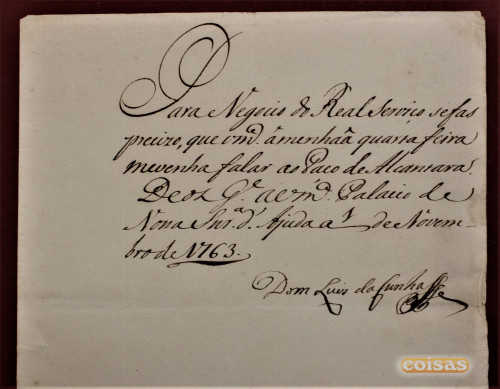 Para Negocio do Real Serviço se fas
precizo, que vm.ᵈ âmenhãa quarta feira
me venha falar ao Paço de Alcantara.
Deos G.ᵉ a vm.ᵈ Palacio de
Nossa Snr.ᵃ d' Ajuda a 1 de Novem-
bro de 1763.
Dom Luis da Cunha
coisas